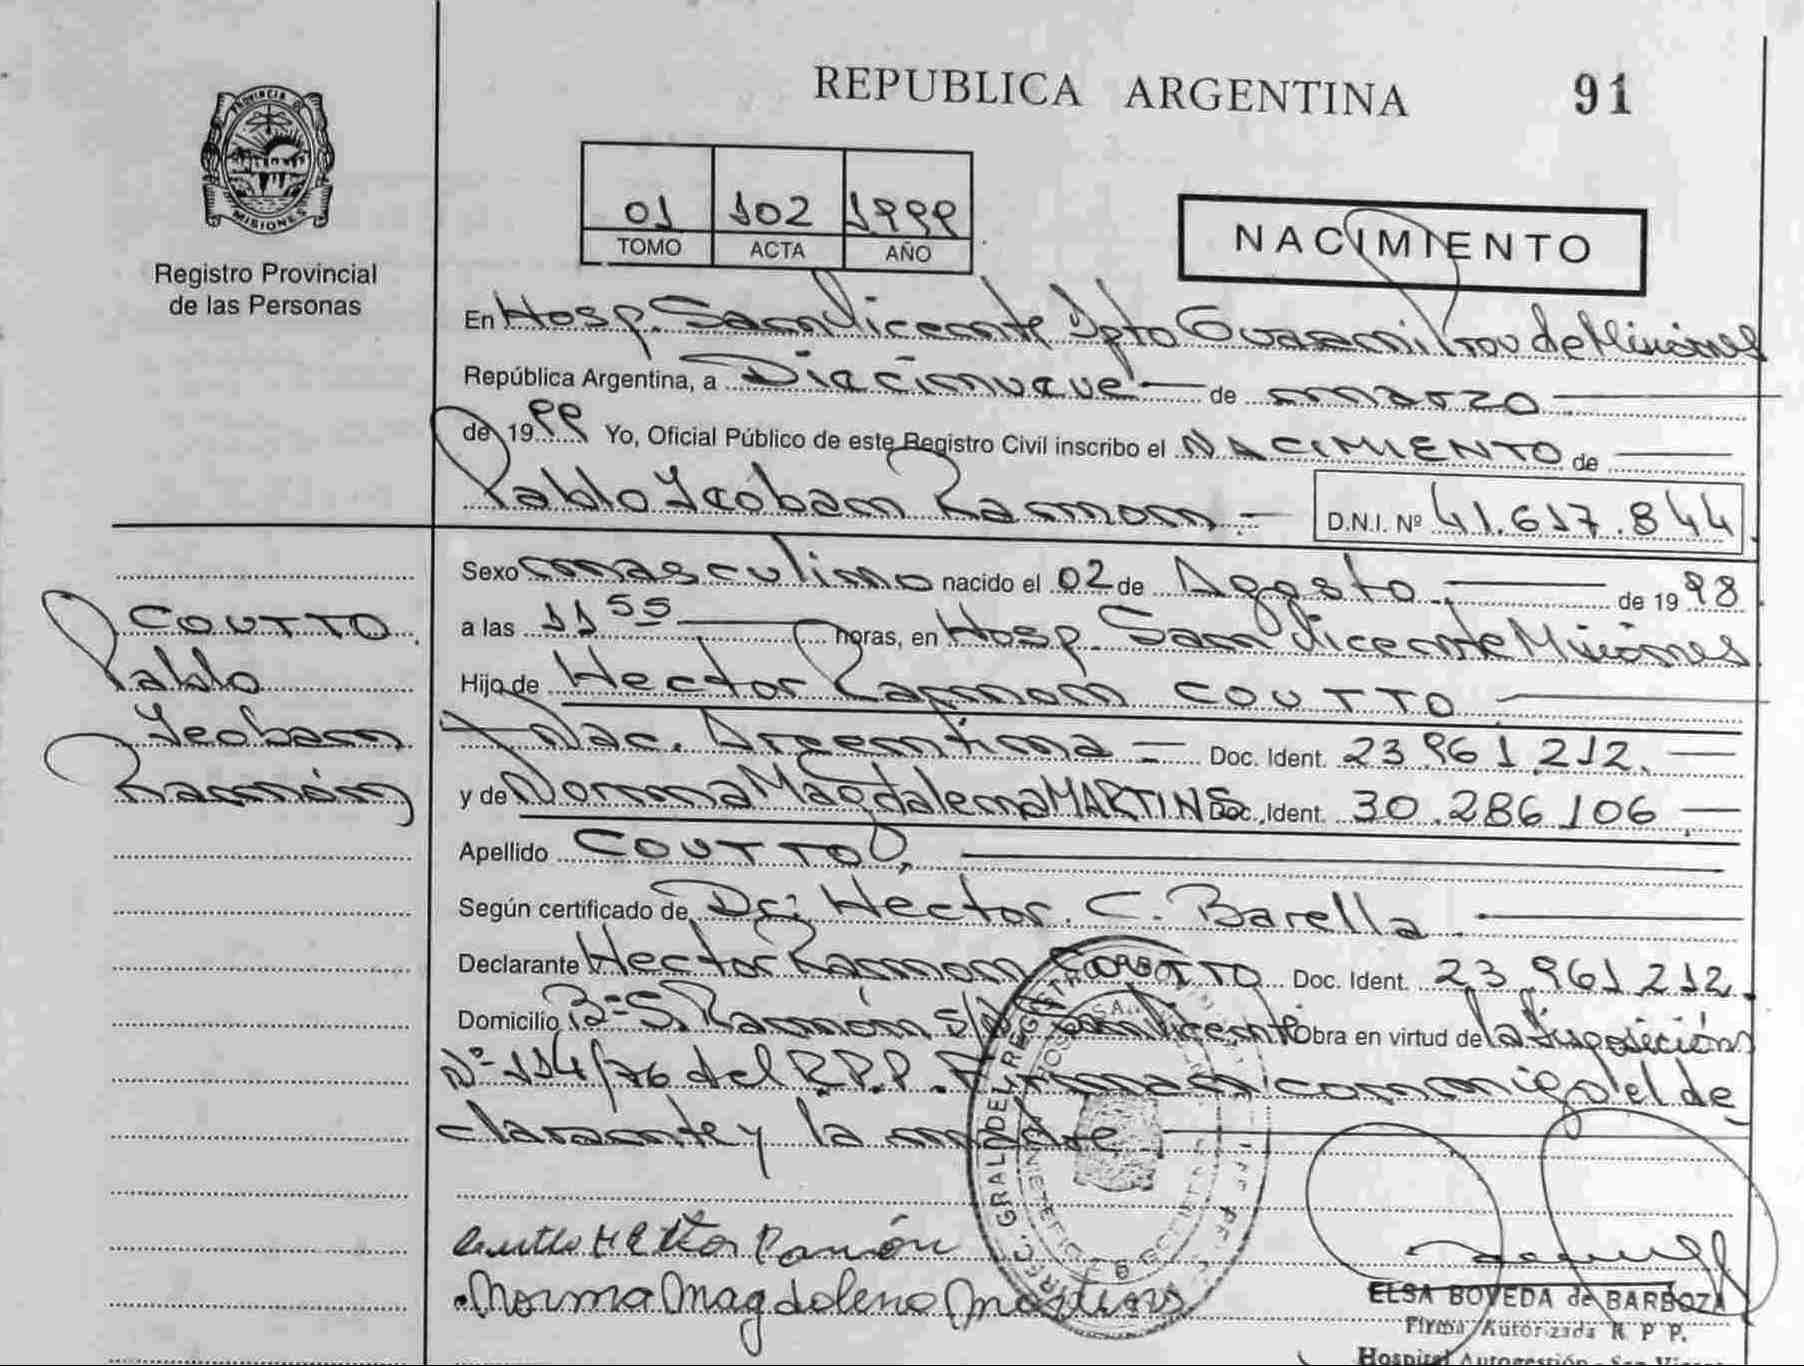 REPUBLICA ARGENTINA 91
PROVINCIA DE
MISIONES
Registro Provincial
de las Personas
01 102 1999
TOMO ACTA AÑO
NACIMIENTO
En Hosp. San Vicente Dpto Guaraní Prov de Misiones
República Argentina, a Diecinueve de marzo
de 1999 Yo, Oficial Público de este Registro Civil inscribo el NACIMIENTO de
Pablo Yeobam Ramon D.N.I. Nº 41.617.844
Sexo masculino nacido el 02 de Agosto de 1998
a las 11 55 horas, en Hosp. San Vicente Misiones
Hijo de Hector Ramon COUTTO
Nac. Argentina Doc. Ident. 23.961.212.
y de Norma Magdalena MARTINS Doc. Ident. 30.286.106
Apellido COUTTO
Según certificado de Dr: Hector. C. Barella
Declarante Hector Ramon COUTTO Doc. Ident. 23.961.212.
Domicilio Bº S. Ramón s/n San Vicente Obra en virtud de la Disposición
Nº 114/76 del R.P.P. Firman conmigo el de
clarante y la madre
COUTTO
Pablo
Yeobam
Ramón
Coutto Hector Ramón
Norma Magdalena Martins
ELSA BOVEDA de BARBOZA
Firma Autorizada R P P.
Hospital Autogestión - San Vicente